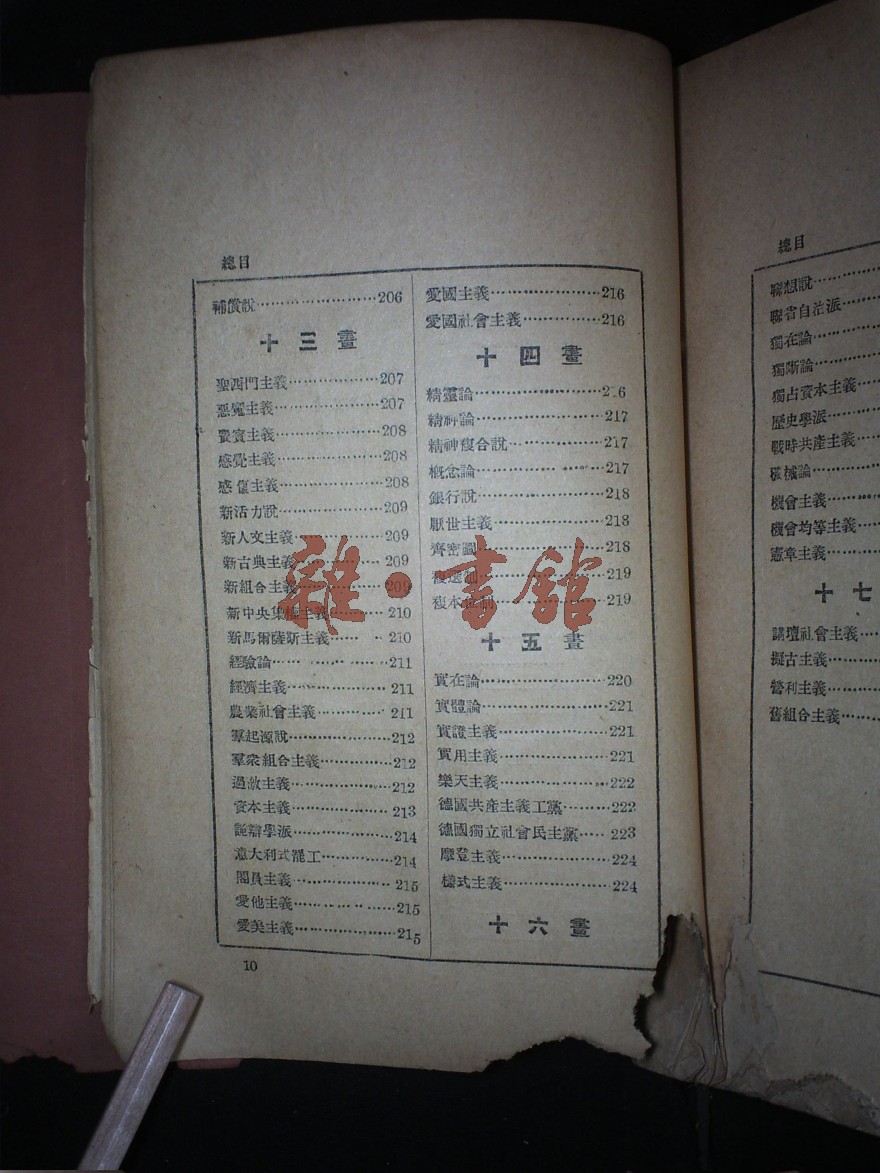 總目
補償說……………………206
十三畫
聖西門主義………………207
惡魔主義…………………207
實主義…………………208
感覺主義…………………208
感傷主義…………………208
新活力說…………………209
新人文主義………………209
新古典主義………………209
新組合主義………………209
新中央集權主義…………210
新馬爾薩斯主義…………210
經驗論……………………211
經濟主義…………………211
農業社會主義……………211
羣起源說…………………212
羣衆組合主義……………212
過激主義…………………212
資本主義…………………213
詭辯學派…………………214
意大利式罷工……………214
閥員主義…………………215
愛他主義…………………215
愛美主義…………………215
10
愛國主義…………………216
愛國社會主義……………216
十四畫
精靈論……………………216
精神論……………………217
精神複合說………………217
概念論……………………217
銀行說……………………218
厭世主義…………………218
齊密圖……………………218
複選制……………………219
複本位制…………………219
十五畫
實在論……………………220
實體論……………………221
實證主義…………………221
實用主義…………………221
樂天主義…………………222
德國共產主義工黨………222
德國獨立社會民主黨……223
摩登主義…………………224
樣式主義…………………224
十六畫
總目
聯想說…………
聯省自治派……
獨在論…………
獨斷論…………
獨占資本主義…
歷史學派………
戰時共產主義…
機械論…………
機會主義………
機會均等主義…
憲章主義………
十七
講壇社會主義…
擬古主義………
營利主義………
舊組合主義……
雜·書館